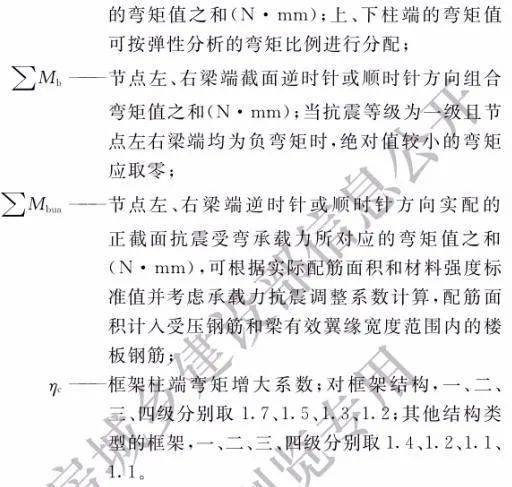 的弯矩值之和(N·mm);上、下柱端的弯矩值
可按弹性分析的弯矩比例进行分配;
∑Mb——节点左、右梁端截面逆时针或顺时针方向组合
弯矩值之和(N·mm);当抗震等级为一级且节
点左右梁端均为负弯矩时,绝对值较小的弯矩
应取零;
∑Mbua——节点左、右梁端逆时针或顺时针方向实配的
正截面抗震受弯承载力所对应的弯矩值之和
(N·mm),可根据实际配筋面积和材料强度标
准值并考虑承载力抗震调整系数计算,配筋面
积计入受压钢筋和梁有效翼缘宽度范围内的楼
板钢筋;
ηc——框架柱端弯矩增大系数;对框架结构,一、二、
三、四级分别取 1.7、1.5、1.3、1.2;其他结构类
型的框架,一、二、三、四级分别取 1.4、1.2、1.1、
1.1。
房城乡建设部信息公开
浏览专用